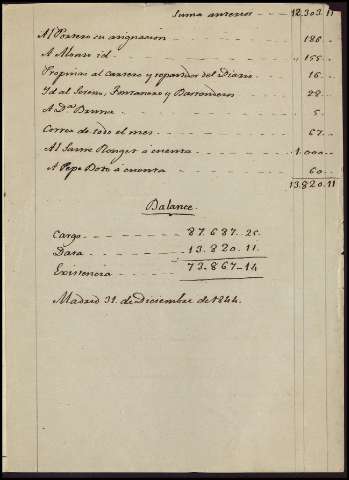 Suma anterior - - - 12.303.11
Al Portero su asignacion - - - 186 -
A Alvaro id. - - - 155 -
Propinas al cartero y repartidor del Diario - 16 -
Id al Sereno, Fontanero y Barrenderos - - 28 -
A Dª - - - 5 -
Correo de todo el mes - - - 67 -
Al a cuenta - - - 1.000 -
A Pepe a cuenta - - - 60 -
13.820.11
Balance
Cargo - - - 87.687.25
Data - - - 13.820.11.
Existencia - - - 73.867-14
Madrid 31. de Diciembre de 1844.